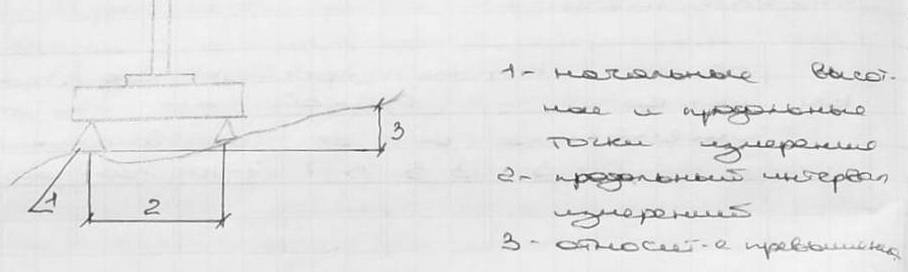 1
2
3
1- начальные высот-
ные и продольные
точки измерения
2- продольный интервал
измерений
3 - относит-е превышение